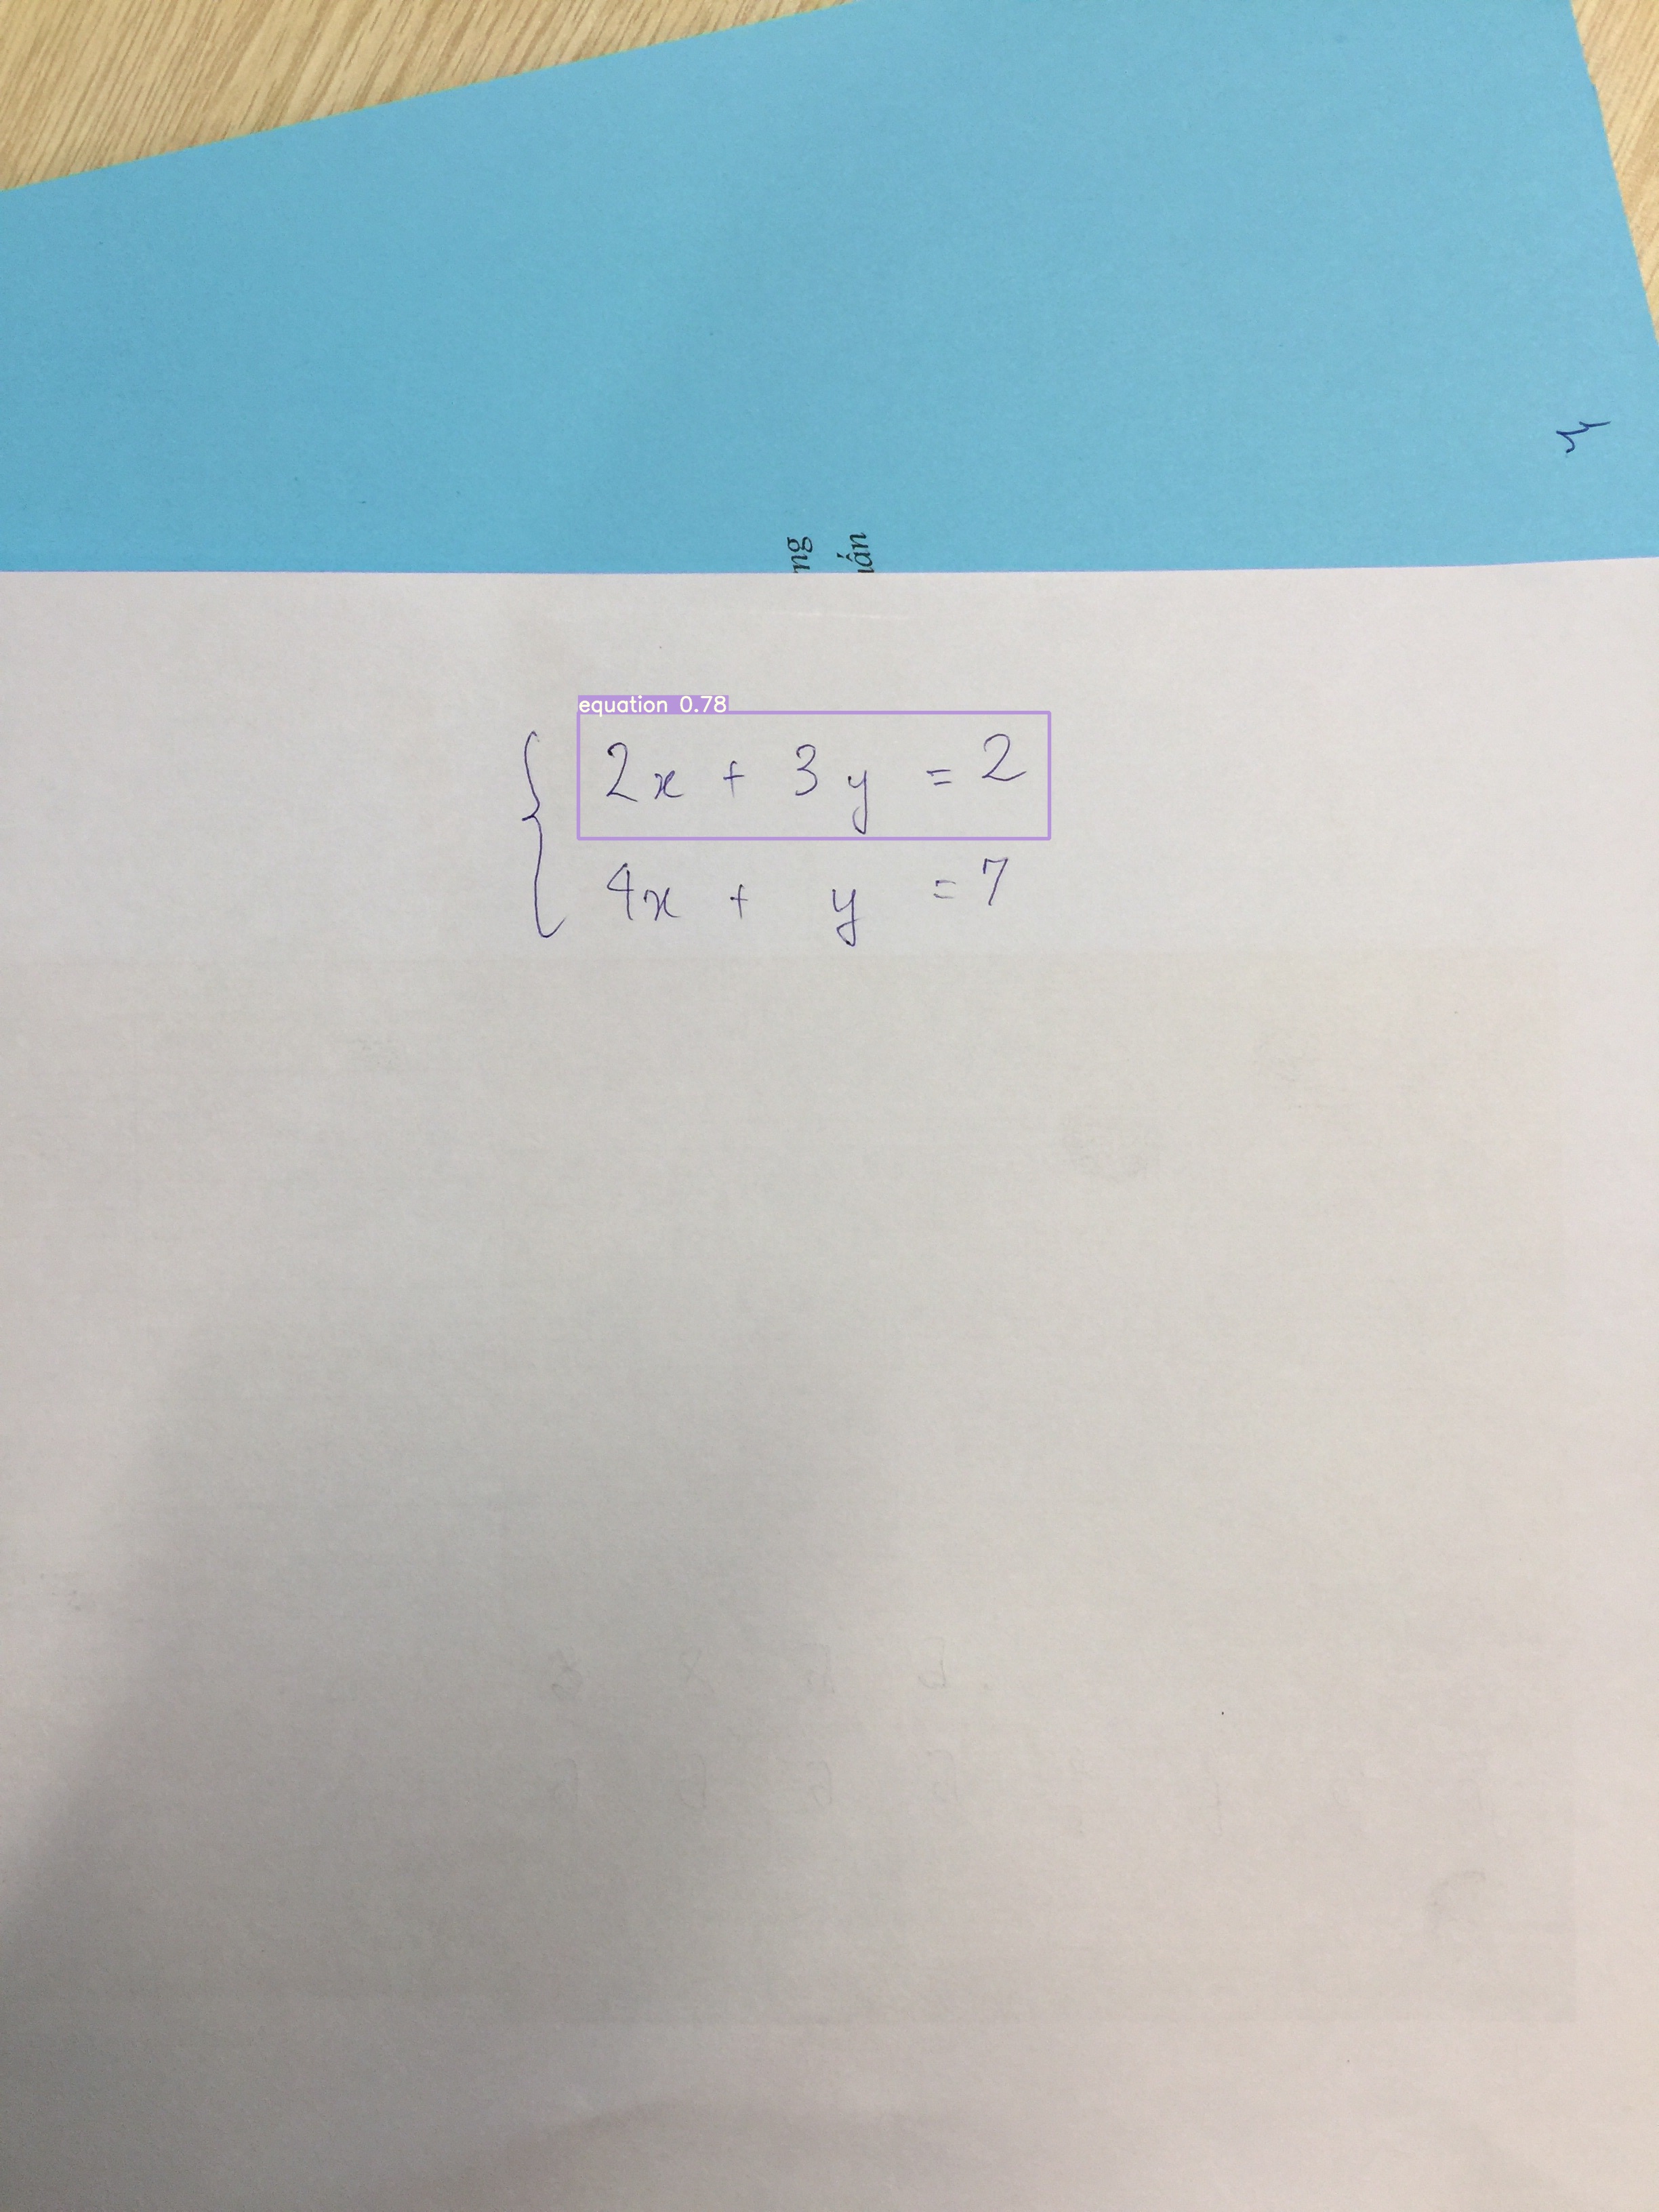 ng
uán
equation 0.78
2x + 3y = 2
4x + y = 7